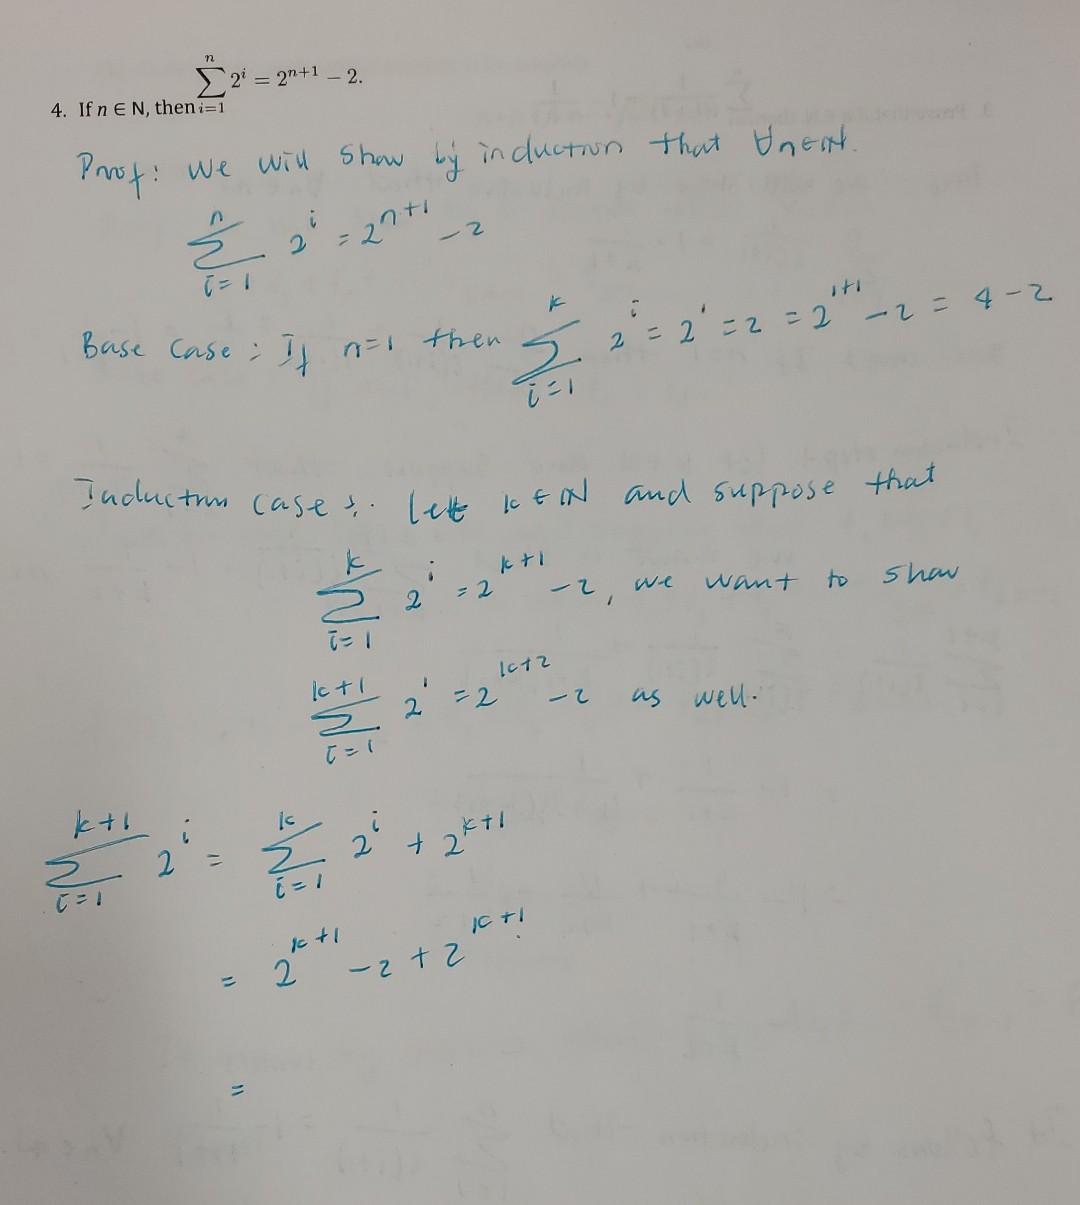 ∑_{i=1}^{n} 2^i = 2^{n+1} − 2.
4. If n ∈ N, then
Proof: We will show by induction that ∀n∈ℕ.
∑_{i=1}^{n} 2^i = 2^{n+1} − 2
Base Case: If n=1 then ∑_{i=1}^{k} 2^i = 2^1 = 2 = 2^{1+1} − 2 = 4 − 2
Induction case: let k ∈ ℕ and suppose that
∑_{i=1}^{k} 2^i = 2^{k+1} − 2, we want to show
∑_{i=1}^{k+1} 2^i = 2^{k+2} − 2 as well.
∑_{i=1}^{k+1} 2^i = ∑_{i=1}^{k} 2^i + 2^{k+1}
= 2^{k+1} − 2 + 2^{k+1}
=